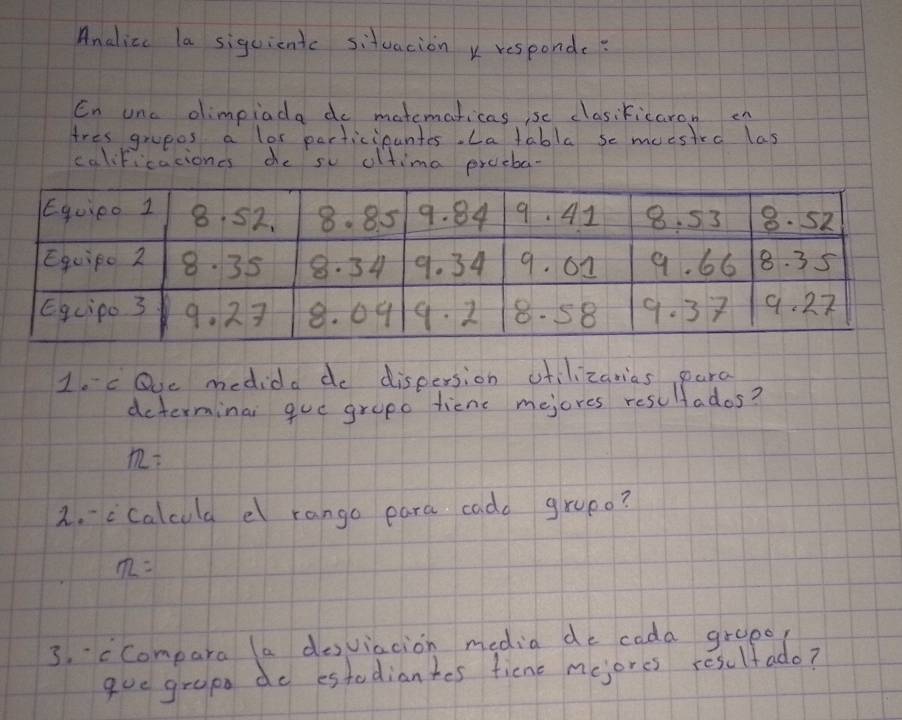 Analice la siguiente situación y responde:
En una olimpiada de matematicas, se clasificaron en
tres grupos a los participantes. La tabla se muestra las
calificaciones de su ultima prueba-
Equipo 1 8.52. 8.85 9.84 9.41 8.53 8.52
Equipo 2 8.35 8.34 9.34 9.01 9.66 8.35
Equipo 3 9.27 8.09 9.2 8.58 9.37 9.27
1.-¿Que medida de dispersion utilizarias para
determinar que grupo tiene mejores resultados?
R=
2.-¿Calcula el rango para cada grupo?
R=
3.-¿Compara la desviación media de cada grupo,
que grupo de estudiantes tiene mejores resultado?